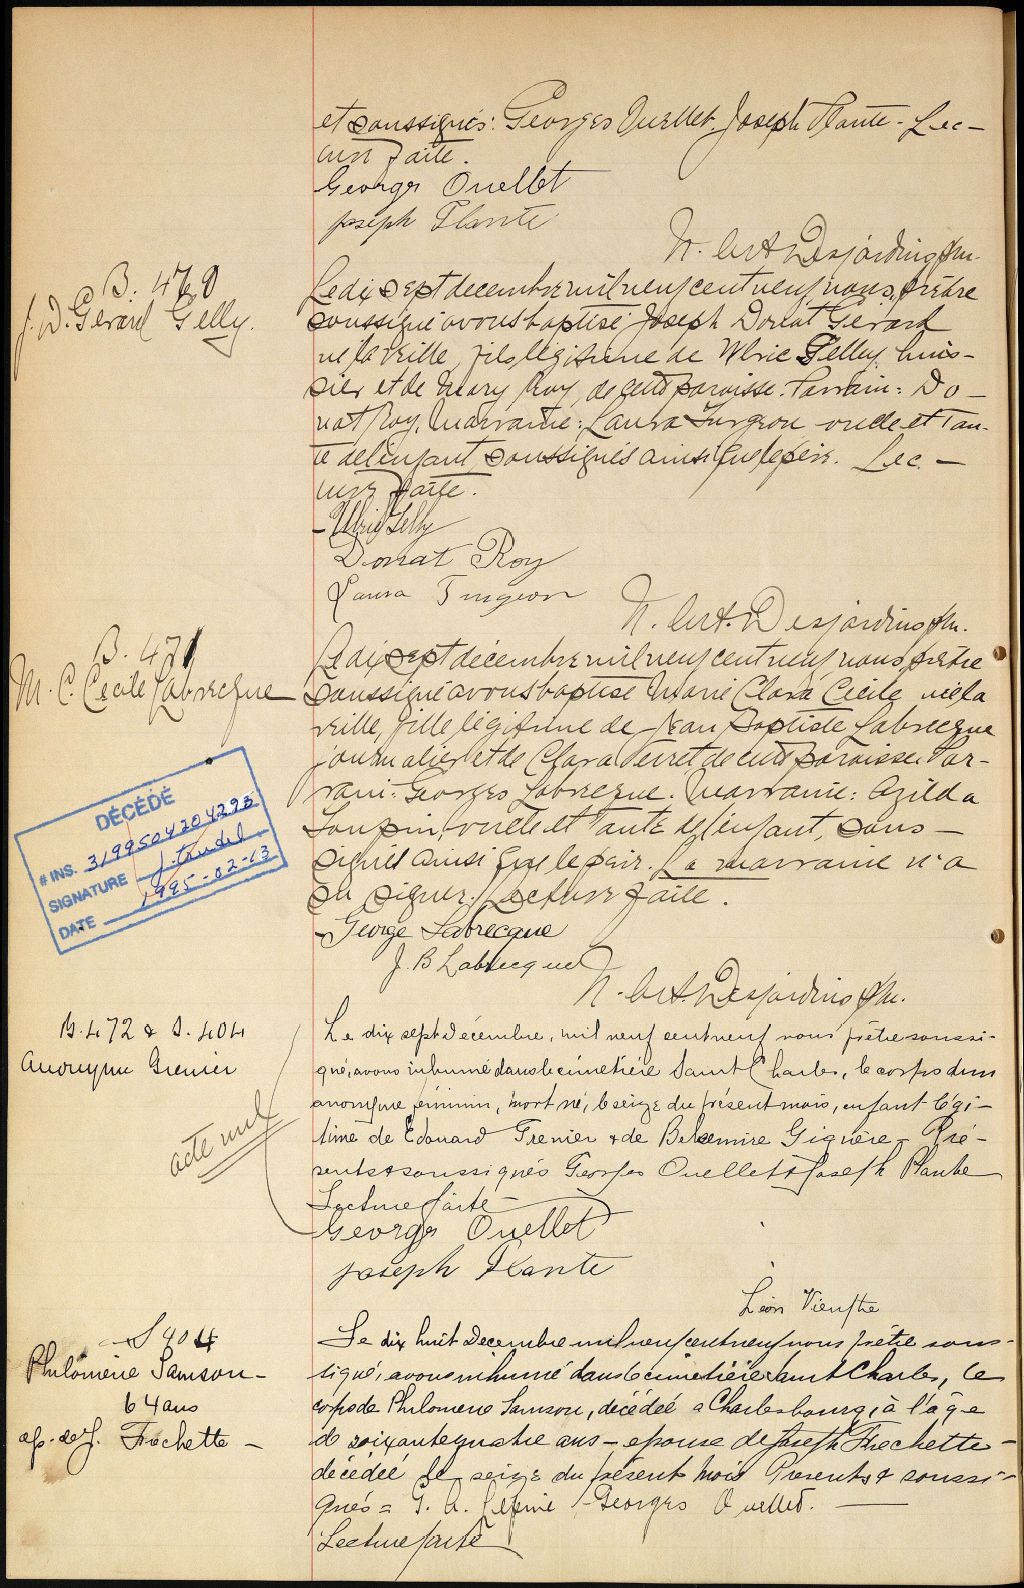 et soussignés: Georges Ouellet. Joseph Plante - Lec-
ture faite.
Georges Ouellet
Joseph Plante
Desjardins, ptre.
B. 470
J. D. Gérard Gelly.
Le dix sept decembre mil neuf cent neuf nous, prêtre
soussigné avons baptisé Joseph Donat Gérard
né la veille, fils légitime de Ulric Gelly, huis-
sier et de Mary Roy, de cette paroisse. Parrain: Do-
nat Roy, Marraine: Laura Turgeon oncle et tan-
te de l'enfant, soussignés ainsi que le père. Lec-
ture faite.
Ulric Gelly
Donat Roy
Laura Turgeon
Desjardins ptre.
B. 471
M. C. Cécile Labrecque
Le dix sept décembre mil neuf cent neuf nous, prêtre
soussigné avons baptisé Marie Clara Cécile née la
veille, fille légitime de Jean Baptiste Labrecque
journalier et de Clara Verret de cette paroisse. Par-
rain: Georges Labrecque. Marraine: Azilda
oncle et tante de l'enfant, sous-
signés ainsi que le père. La marraine n'a
su signer. Lecture faite.
George Labrecque
J. B Labrecque
Desjardins ptre.
DÉCÉDÉ
# INS. 3199504204295
SIGNATURE
DATE 1995-02-13
B. 472 & S. 404
Anonyme Grenier
acte nul
Le dix sept Décembre, mil neuf cent neuf nous prêtre soussi-
gné, avons inhumé dans le cimetière Saint Charles, le corps d'un
anonyme féminin, mort né, le seize du présent mois, enfant légi-
time de Edouard Grenier & de Belzemire Giguère - Pré-
sents & soussignés Georges Ouellet & Joseph Plante
Lecture faite
Georges Ouellet
Joseph Plante
Léon Vien ptre
S 404
Philomène Samson -
64 ans
ép. de J. Frechette -
Le dix huit Décembre mil neuf cent neuf nous prêtre sous-
signé, avons inhumé dans le cimetière Saint Charles, le
corps de Philomène Samson, décédée a Charlesbourg, à l'âge
de soixante quatre ans - epouse de Joseph Frechette -
décédée le seize du présent mois Presents & soussi-
gnés = Georges Ouellet.
Lecture faite